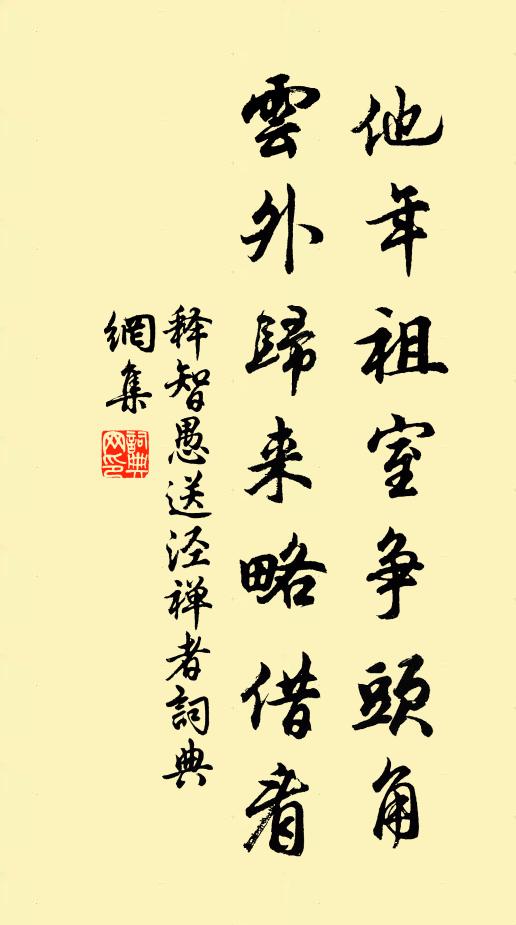 他年祖室争頭角
雲外歸来略借看
释智愚送泾禅者詞典
網集
詞典
网印